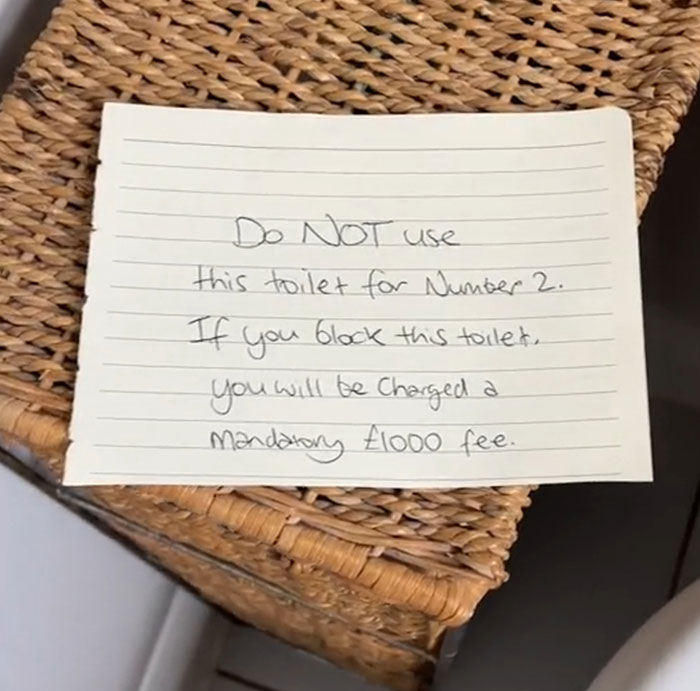 Do NOT use
this toilet for Number 2.
If you block this toilet,
you will be Charged a
Mandatory £1000 fee.